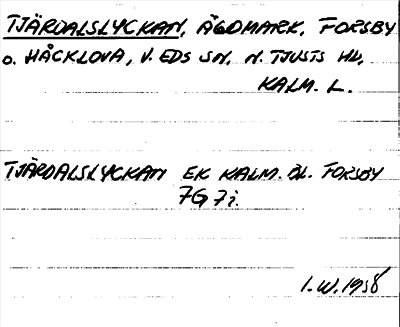 TJÄRDALSLYCKAN, ÄGOMARK, FORSBY
O. HÅCKLOVA, V. EDS SN, N. TJUSTS HD,
KALM. L.
TJÄRDALSLYCKAN EK KALM. BL. FORSBY
7G 7i.
I.W. 1958